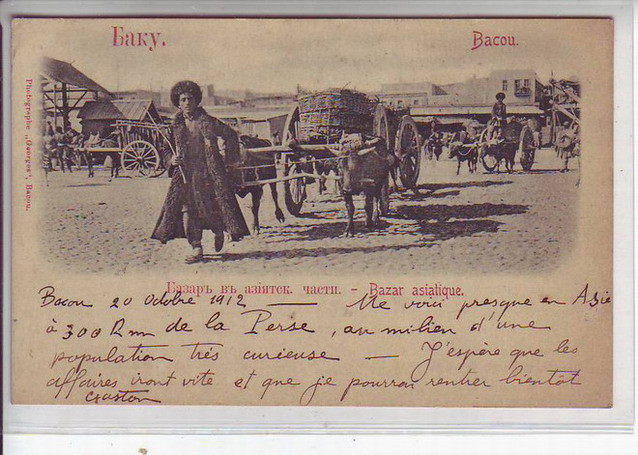 Баку.
Bacou.
Photographie „Georges", Bacou.
Базаръ въ азіятск. части. - Bazar asiatique.
Bacou 20 Octobre 1912 — Me voici presque en Asie
à 300 Km de la Perse, au milieu d'une
population très curieuse — J'espère que les
affaires iront vite et que je pourrai rentrer bientôt
Gaston